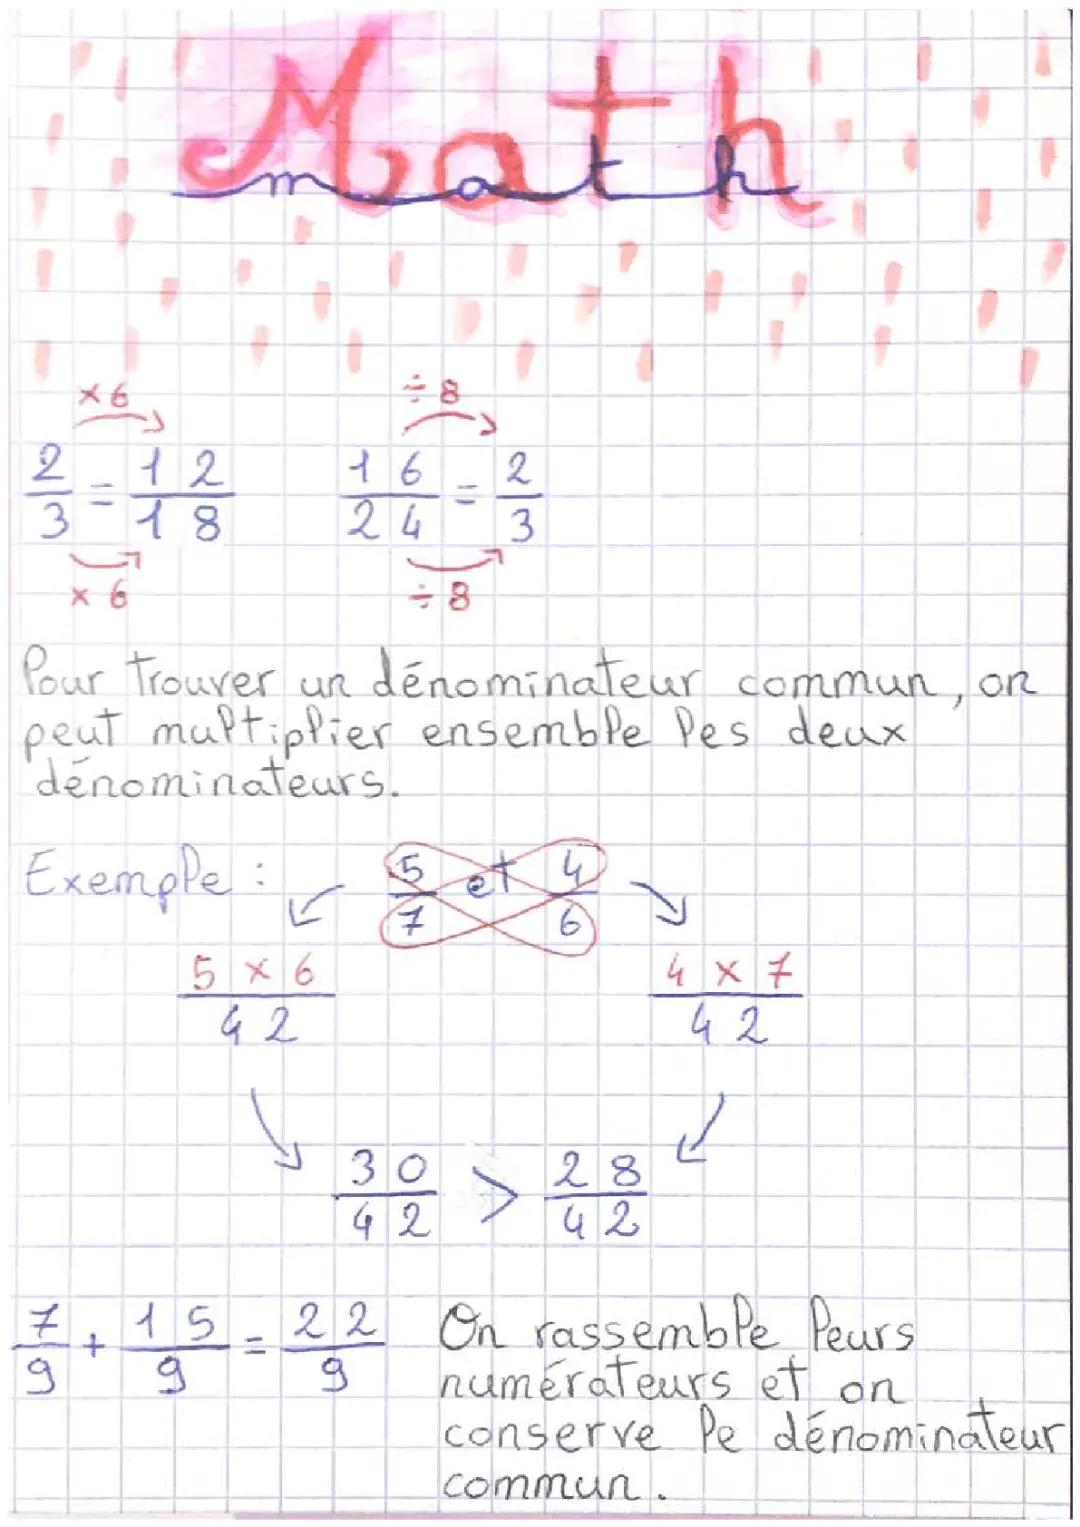 Math
math
×6 ÷8
2/3 = 12/18 16/24 = 2/3
×6 ÷8
Pour trouver un dénominateur commun, on
peut multiplier ensemble les deux
dénominateurs.
Exemple : 5/7 et 4/6
5 × 6/42 4 × 7/42
30/42 > 28/42
7/9 + 15/9 = 22/9 On rassemble leurs
numérateurs et on
conserve le dénominateur
commun.